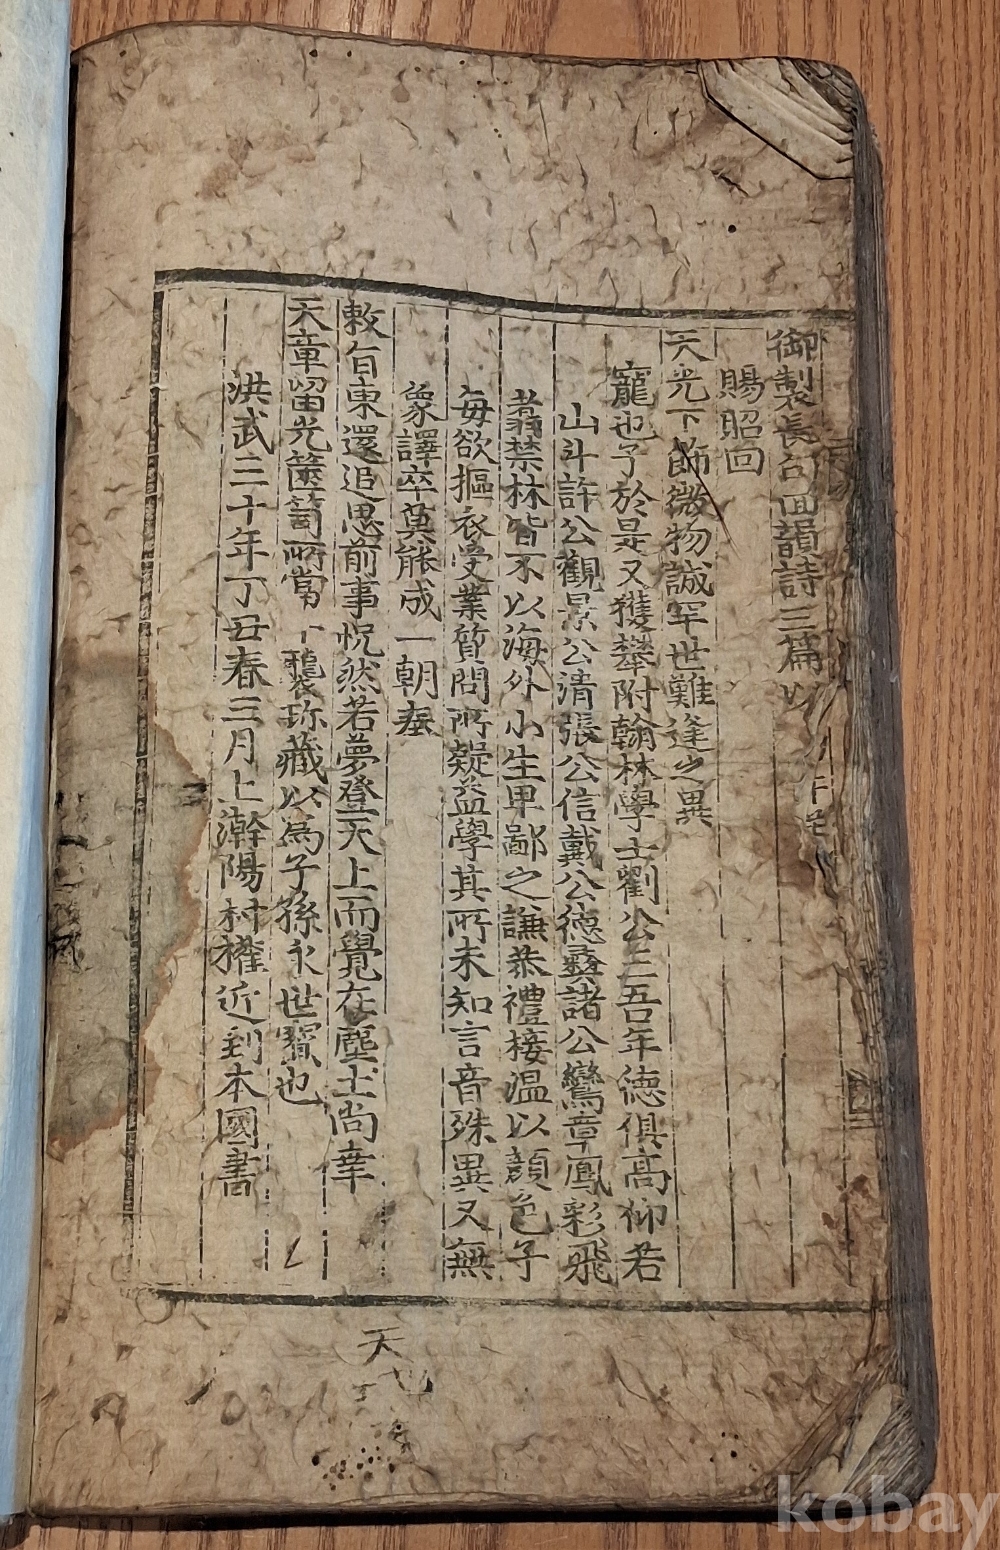 御製長句四韻詩三篇以
賜昭回
天光下飾微物誠罕世難逢之異
寵也予於是又獲攀附翰林學士劉公三吾年德俱高仰若
山斗許公觀景公清張公信戴公德彝諸公鸞章鳳彩飛
翥禁林皆不以海外小生卑鄙之謙恭禮接温以顔色予
每欲摳衣受業質問所疑益學其所未知言音殊異又無
象譯卒莫能成一朝奉
敕自東還追思前事怳然若夢登天上而覺在塵土尚幸
天章留光篋笥所當襲珎藏以爲子孫永世寶也
洪武三十年丁丑春三月上澣陽村權近到本國書
天
kobay